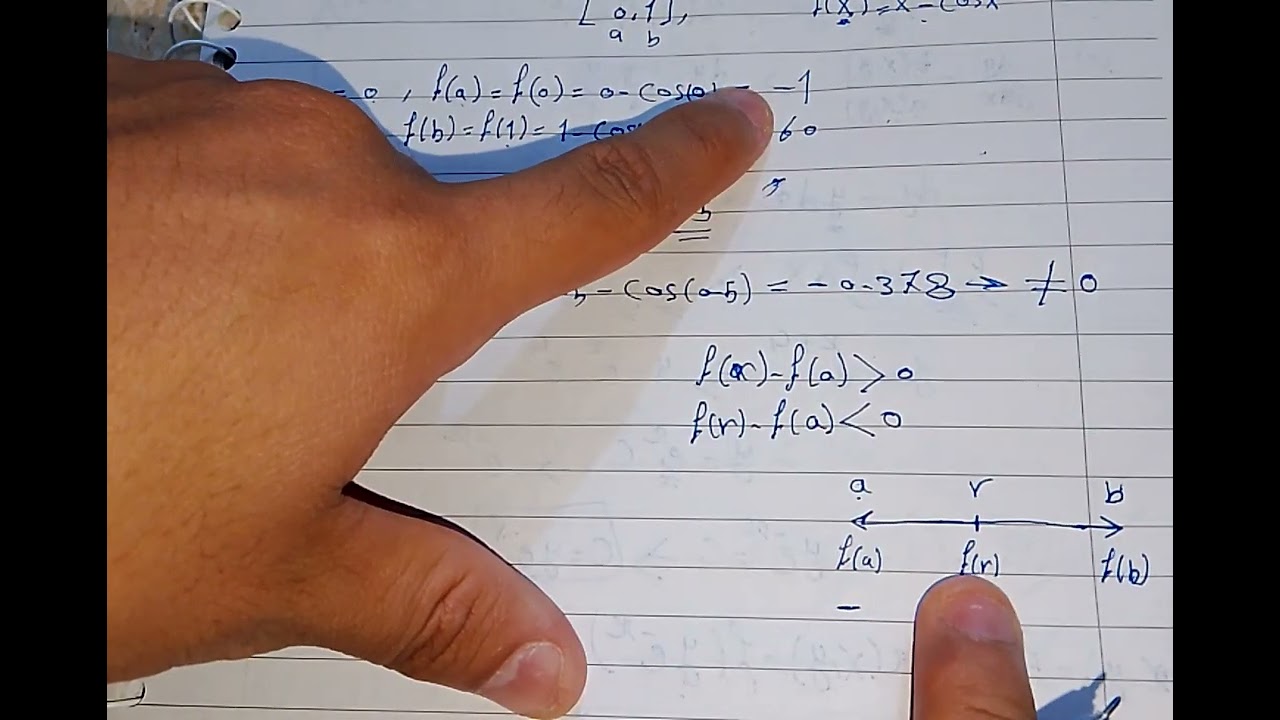 [0,1], f(x)=x-cosx
a b
= 0 , f(a)=f(0)= 0-cos(0) = -1
f(b)=f(1)= 1-cos 60
5
5-cos(0.5) = -0.378 → ≠ 0
f(x)-f(a)>0
f(r)-f(a)<0
a r b
f(a) f(r) f(b)
-